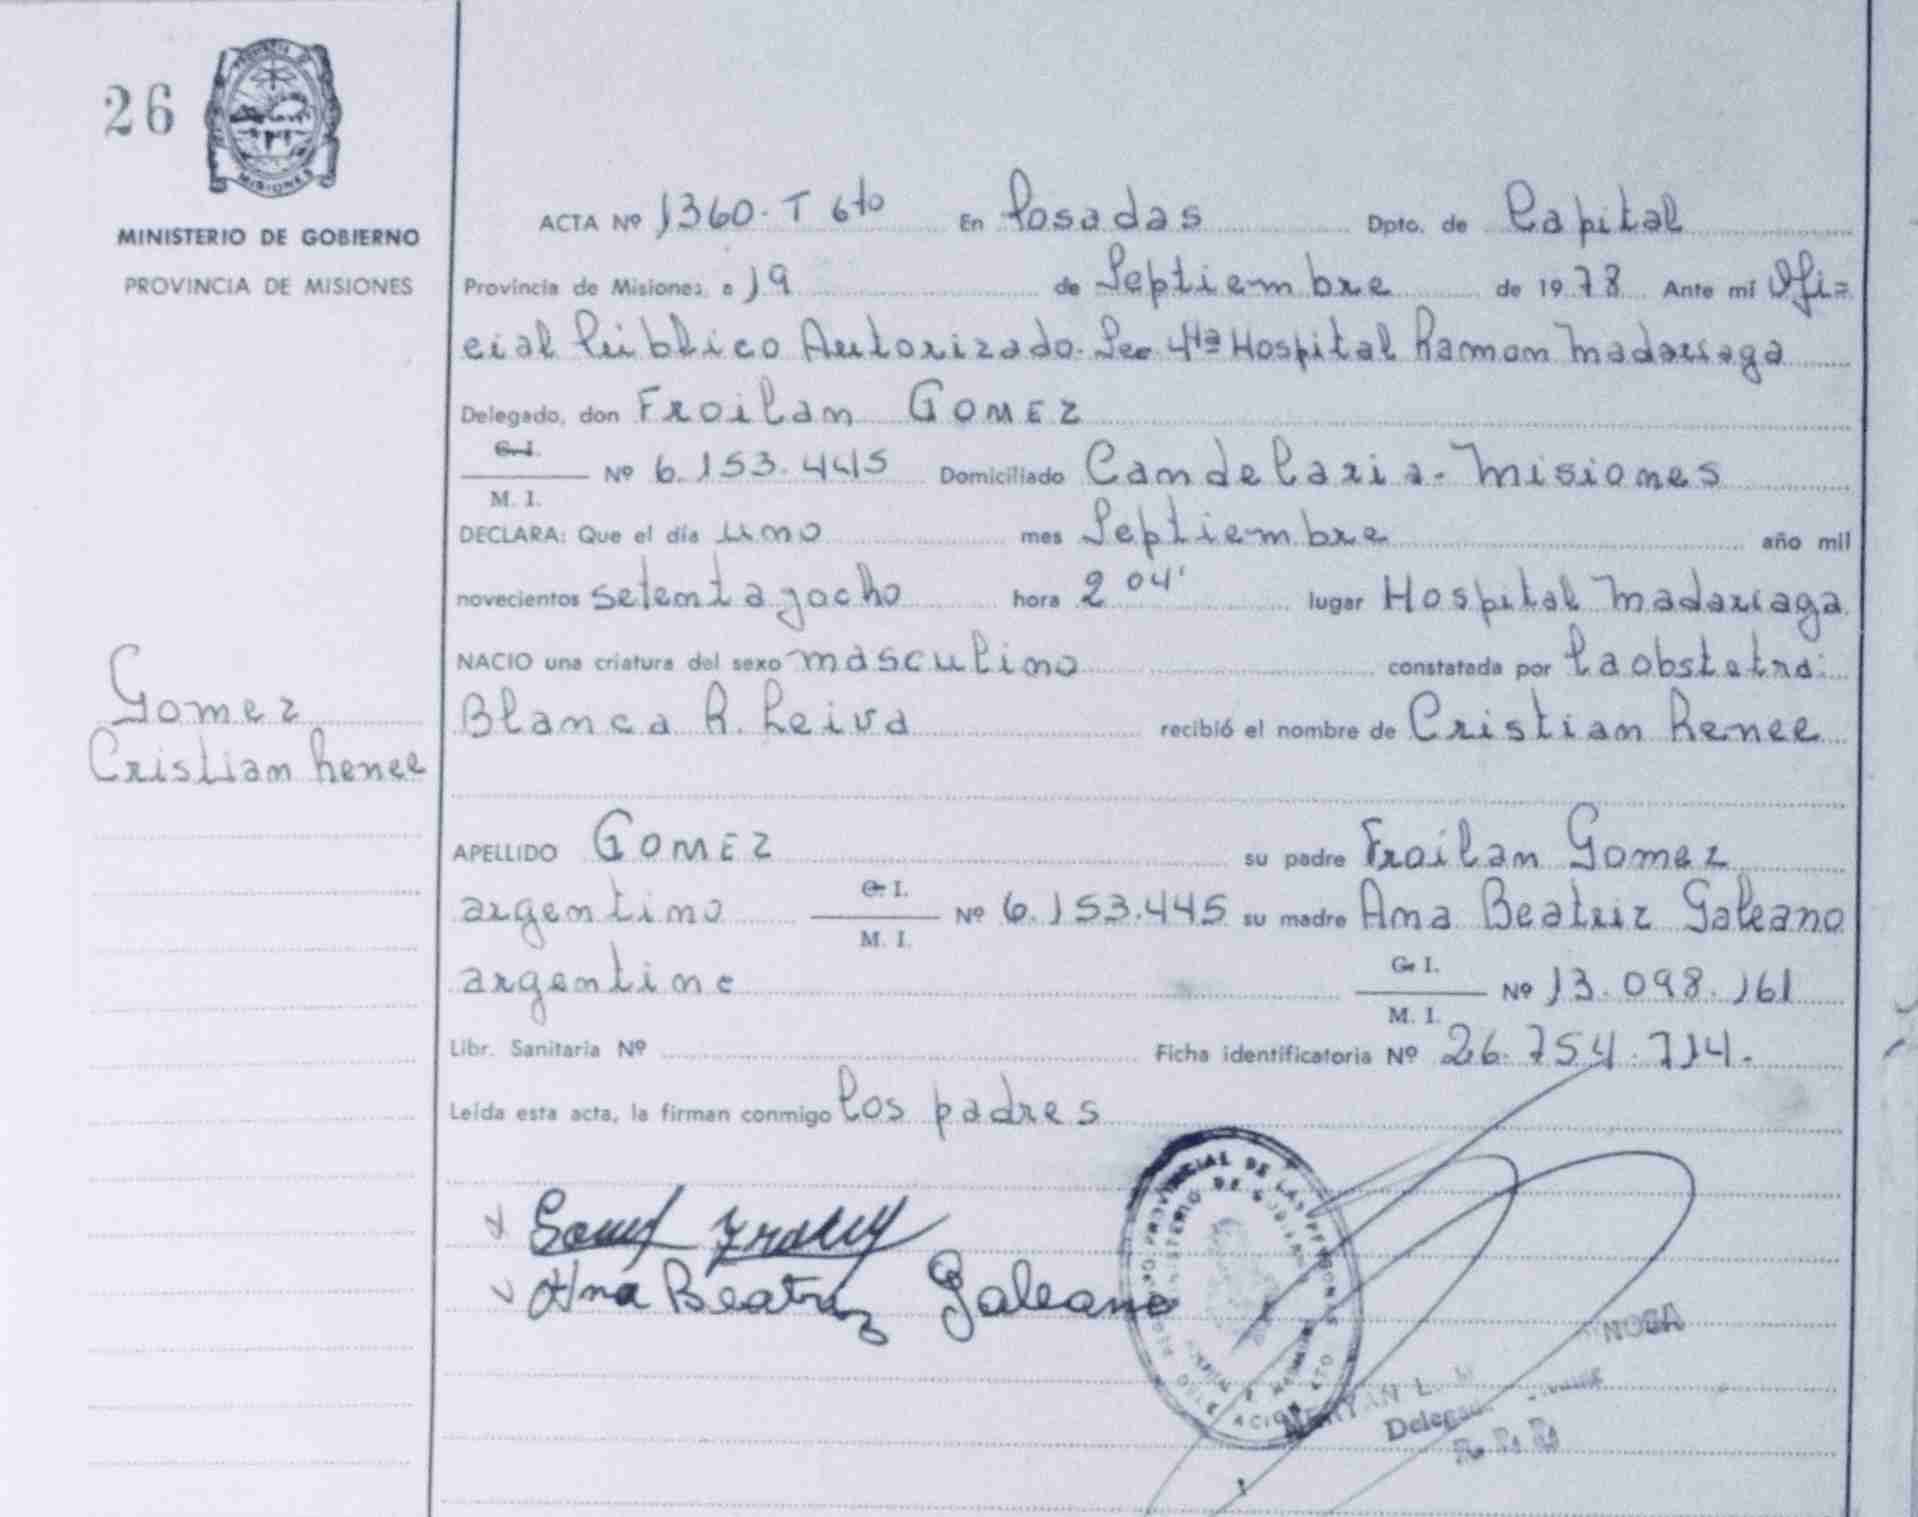 26
MISIONES
MINISTERIO DE GOBIERNO
PROVINCIA DE MISIONES
ACTA Nº 1360. T 6to En Posadas Dpto. de Capital
Provincia de Misiones, a 19 de Septiembre de 1978 Ante mí Ofi=
cial Público Autorizado. Sec 4ta Hospital Ramon Madariaga
Delegado, don Froilan GOMEZ
C. I.
M. I. Nº 6.153.445 Domiciliado Candelaria - Misiones
DECLARA: Que el día uno mes Septiembre año mil
novecientos setenta y ocho hora 2 04' lugar Hospital Madariaga
NACIO una criatura del sexo masculino constatada por la obstetra:
Blanca R. Leiva recibió el nombre de Cristian Renee
Gomez
Cristian Renee
APELLIDO GOMEZ su padre Froilan Gomez
argentino C. I. M. I. Nº 6.153.445 su madre Ana Beatriz Galeano
argentine C. I. M. I. Nº 13.098.161
Libr. Sanitaria Nº Ficha identificatoria Nº 26.754.714.
Leída esta acta, la firman conmigo los padres
Ana Beatriz Galeano
PROVINCIAL DE LAS PERSONAS
MINISTERIO DE GOBIERNO
DELEGACION